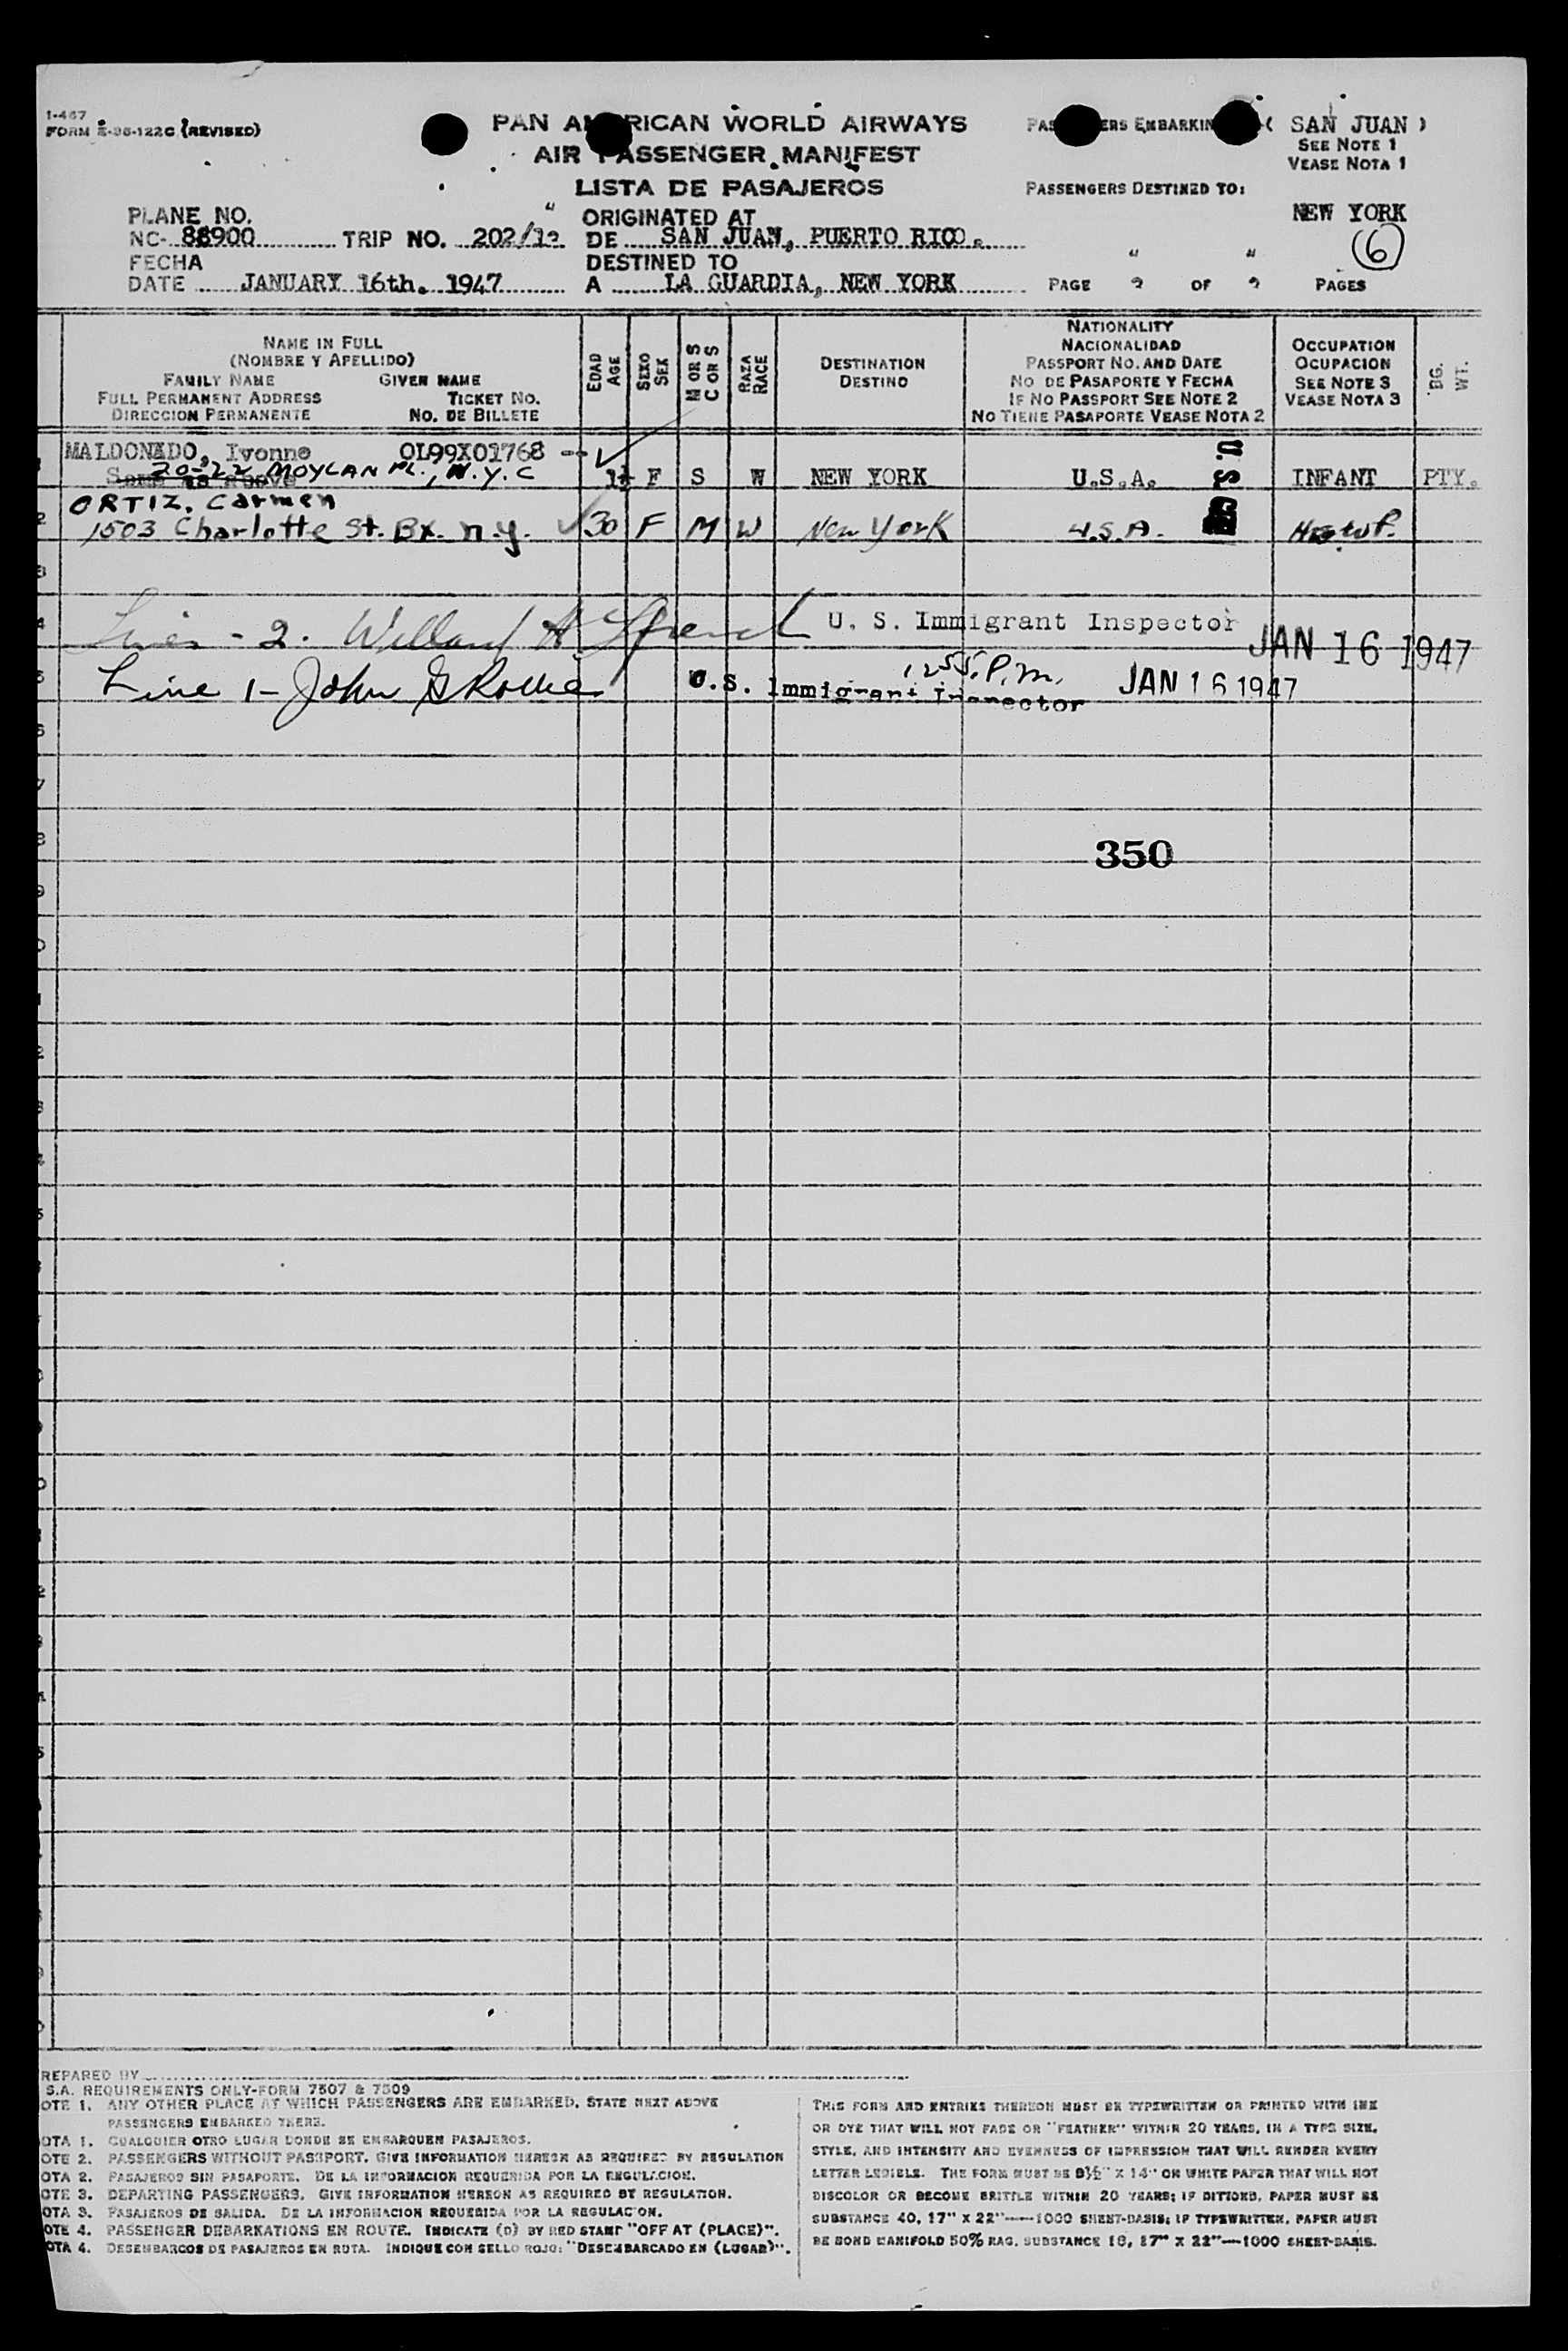 I-467
FORM E-98-122C (REVISED)
PAN AMERICAN WORLD AIRWAYS
AIR PASSENGER MANIFEST
LISTA DE PASAJEROS
PASSENGERS EMBARKING ( SAN JUAN )
SEE NOTE 1
VEASE NOTA 1
PASSENGERS DESTINED TO:
NEW YORK
(6)
PLANE NO.
NC- 88900 TRIP NO. 202/12
ORIGINATED AT
DE SAN JUAN, PUERTO RICO.
FECHA
DATE JANUARY 16th. 1947
DESTINED TO
A LA GUARDIA, NEW YORK
PAGE 2 OF 2 PAGES
NAME IN FULL
(NOMBRE Y APELLIDO)
FAMILY NAME GIVEN NAME
FULL PERMANENT ADDRESS TICKET NO.
DIRECCION PERMANENTE NO. DE BILLETE
EDAD AGE
SEXO SEX
M OR S C OR S
RAZA RACE
DESTINATION
DESTINO
NATIONALITY
NACIONALIDAD
PASSPORT NO. AND DATE
NO DE PASAPORTE Y FECHA
IF NO PASSPORT SEE NOTE 2
NO TIENE PASAPORTE VEASE NOTA 2
OCCUPATION
OCUPACION
SEE NOTE 3
VEASE NOTA 3
BG. WT.
MALDONADO, Ivonne OL99X01768
20-22 MOYLAN PL., N.Y.C 1½ F S W NEW YORK U.S.A. INFANT PTY.
Same as above
U. S.
ORTIZ, Carmen
1503 Charlotte St. Bx. N.Y. 30 F M W New York U.S.A. Hsewf.
Lines - 2. Willard A U. S. Immigrant Inspector JAN 16 1947
Line 1- John G U.S. Immigrant Inspector 1255 P.M. JAN 16 1947
350
REPARED BY
S.A. REQUIREMENTS ONLY-FORM 7507 & 7509
OTE 1. ANY OTHER PLACE AT WHICH PASSENGERS ARE EMBARKED, STATE NEXT ABOVE
PASSENGERS EMBARKED THERE.
OTA 1. CUALQUIER OTRO LUGAR DONDE SE EMBARQUEN PASAJEROS.
OTE 2. PASSENGERS WITHOUT PASSPORT. GIVE INFORMATION HEREON AS REQUIRED BY REGULATION
OTA 2. PASAJEROS SIN PASAPORTE. DE LA INFORMACION REQUERIDA POR LA REGULACION.
OTE 3. DEPARTING PASSENGERS. GIVE INFORMATION HEREON AS REQUIRED BY REGULATION.
OTA 3. PASAJEROS DE SALIDA. DE LA INFORMACION REQUERIDA POR LA REGULACION.
OTE 4. PASSENGER DEBARKATIONS EN ROUTE. INDICATE (D) BY RED STAMP "OFF AT (PLACE)".
OTA 4. DESEMBARCOS DE PASAJEROS EN RUTA. INDIQUE CON SELLO ROJO: "DESEMBARCADO EN (LUGAR)".
THIS FORM AND ENTRIES THEREON MUST BE TYPEWRITTEN OR PRINTED WITH INK
OR DYE THAT WILL NOT FADE OR "FEATHER" WITHIN 20 YEARS, IN A TYPE SIZE,
STYLE, AND INTENSITY AND EVENNESS OF IMPRESSION THAT WILL RENDER EVERY
LETTER LEGIBLE. THE FORM MUST BE 8½" X 14" ON WHITE PAPER THAT WILL NOT
DISCOLOR OR BECOME BRITTLE WITHIN 20 YEARS; IF DITTOED, PAPER MUST BE
SUBSTANCE 40, 17" X 22"—1000 SHEET-BASIS; IF TYPEWRITTEN, PAPER MUST
BE BOND MANIFOLD 50% RAG, SUBSTANCE 18, 17" X 22"—1000 SHEET-BASIS.